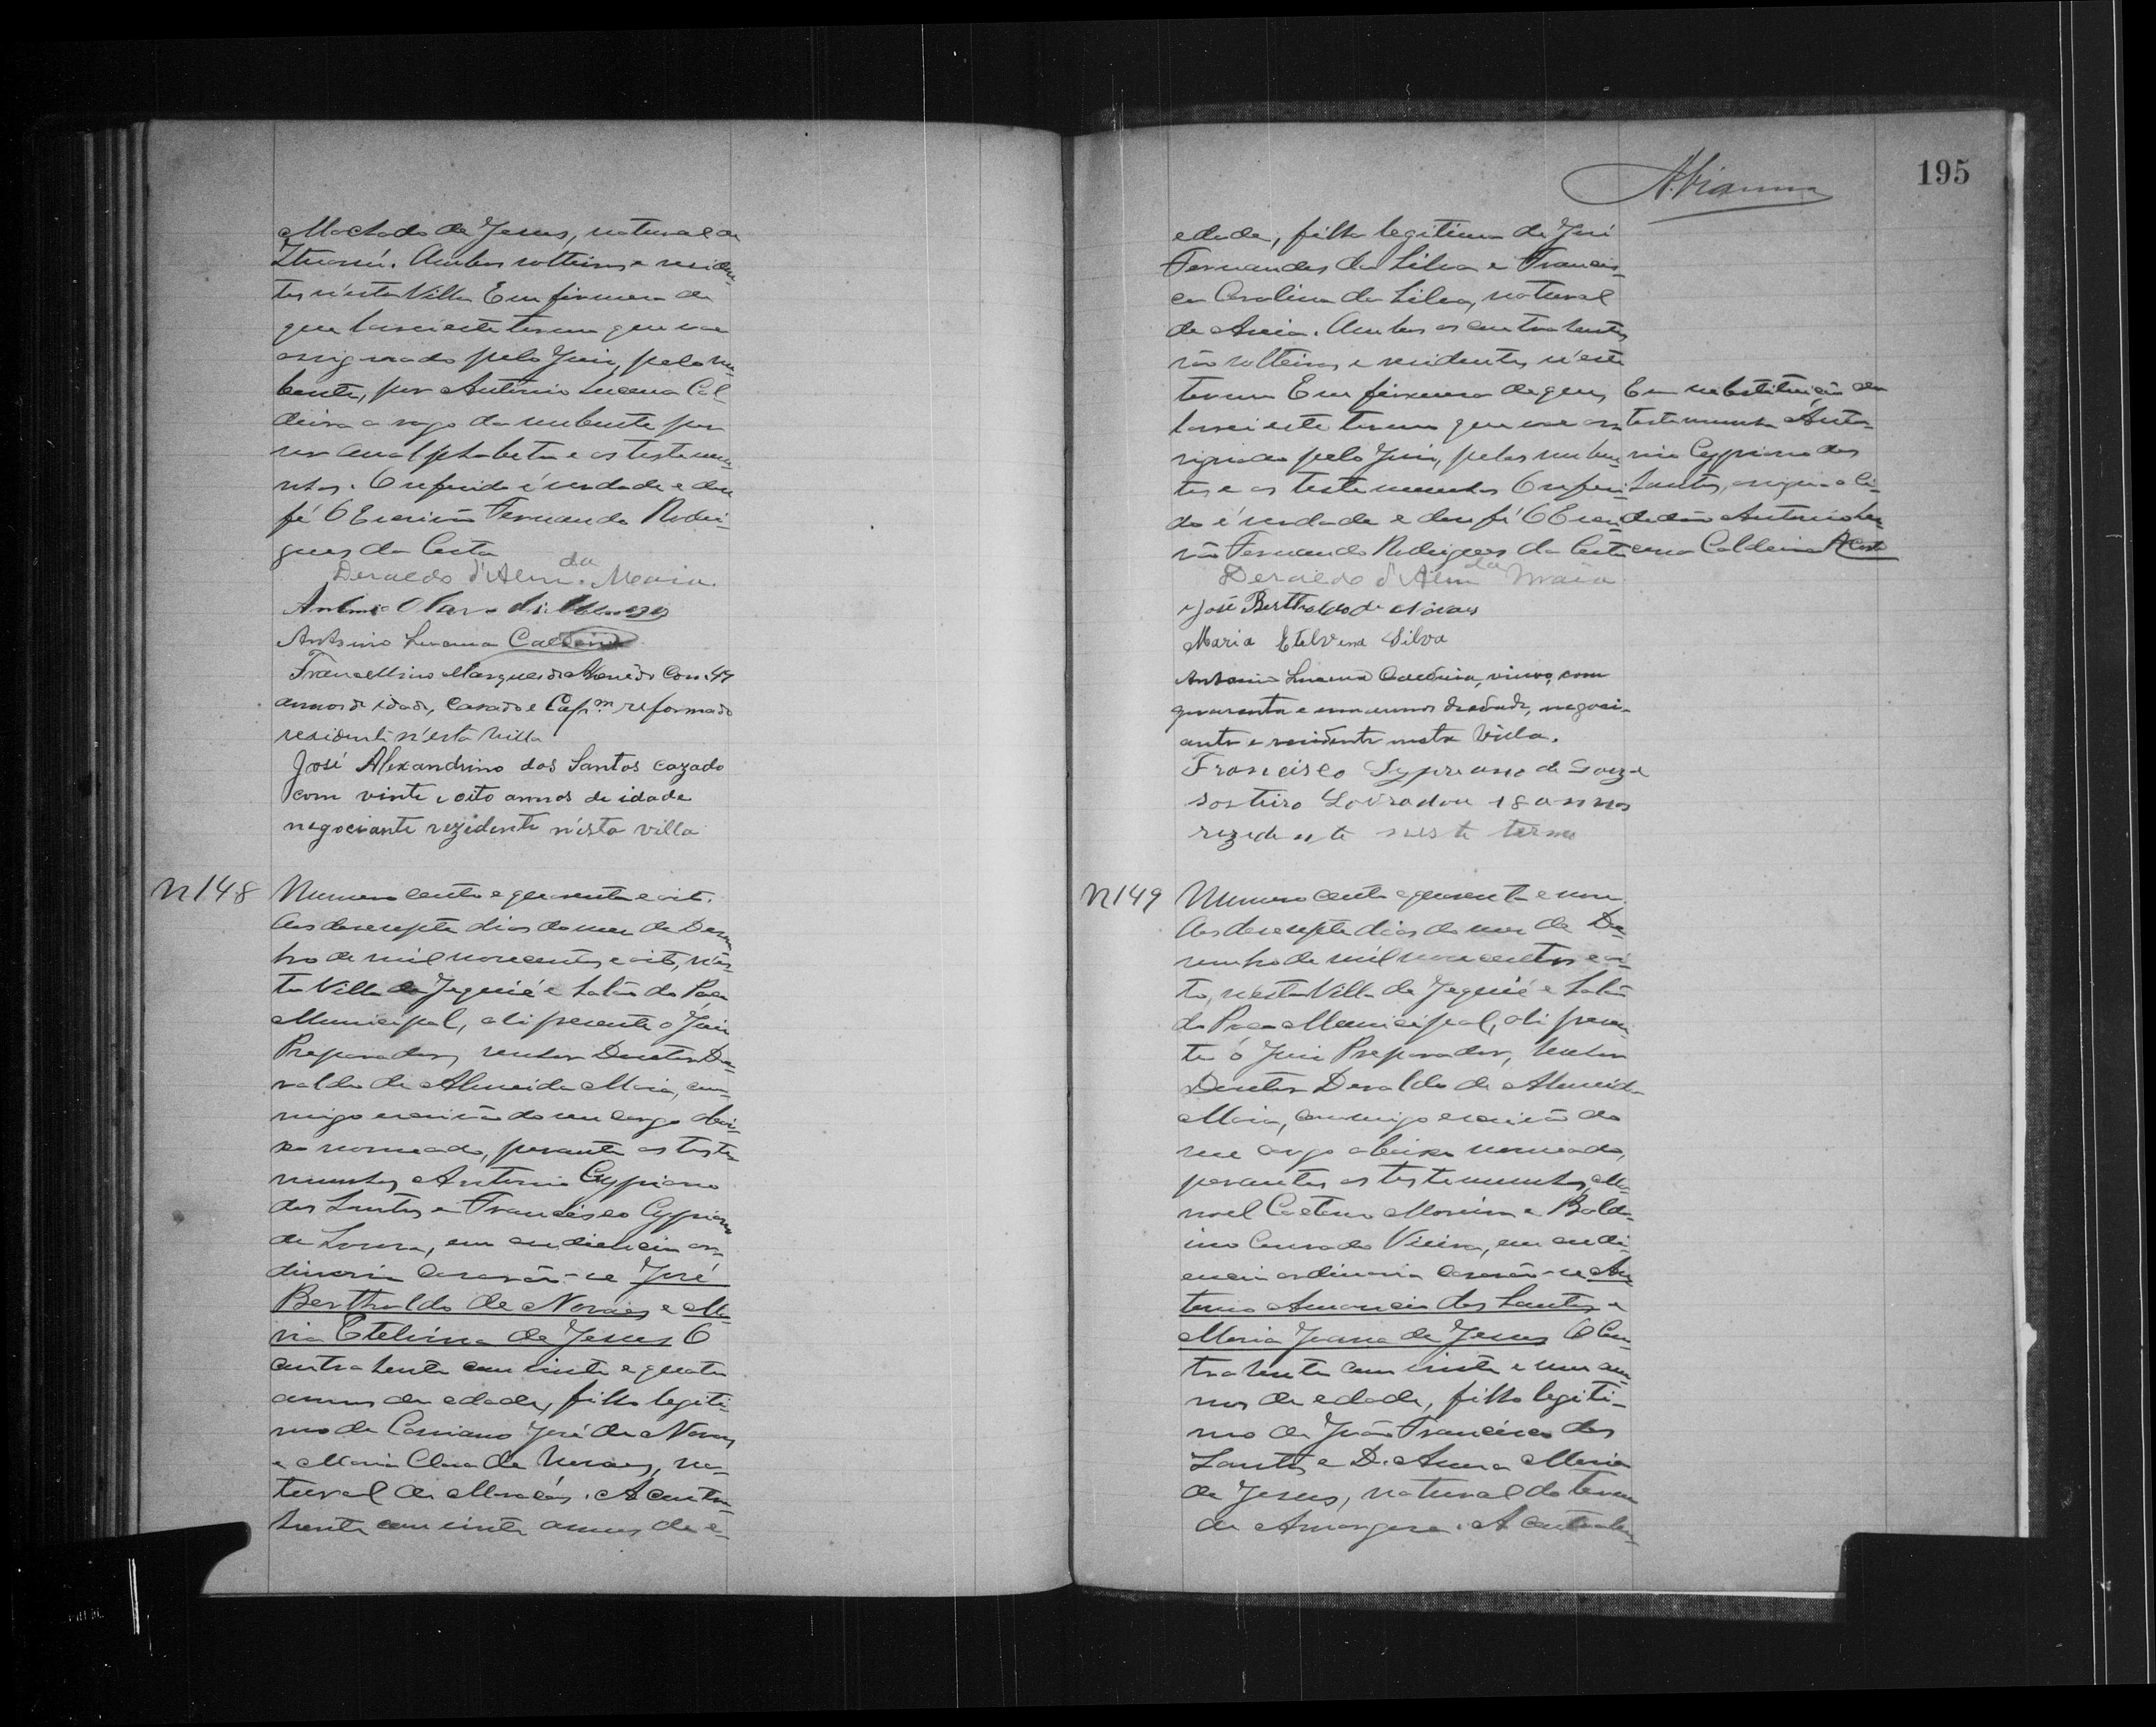 Machado de Jesus, natural de
Ituassú. Ambos solteiros e residen-
tes n'esta Villa Em firmeza do
que lavrei este termo que vae
assignado pelo Juiz, pelo nu-
bente, por Antonio Lucena Cal-
deira a rogo da nubente por
ser analphabeta e as testemu-
nhas. O referido é verdade e dou
fé O Escrivão Fernando Rodri-
gues da Costa
Deraldo d'Alm.da Maia
Antonio Olavo de Menezes
Antonio Lucena Caldeira
Francellino Marques de Com 49
annos de idade, Casado e Cap.m reformado
residente n'esta Villa
José Alexandrino dos Santos cazado
com vinte e oito annos de idade
negociante rezidente n'esta villa
N 148 Numero cento e quarenta e oito.
Aos desesepte dias do mez de Dezem-
bro de mil novecentos e oito, n'es-
ta Villa de Jequié e Salão do Paço
Municipal, ali presente o Juiz
Preparador, senhor Doutor De-
raldo de Almeida Maia, com-
migo escrivão do seu cargo abai-
xo nomeado, perante as teste-
munhas Antonio Cypriano
dos Santos e Francisco Cypriano
de Souza, em audiencia or-
dinaria casarão-se José
Bertholdo de Novaes e Ma-
ria Etelvina de Jesus O
contrahente com vinte e quatro
annos de edade, filho legiti-
mo de Cassiano José de Novaes
e Maria Clara de Moraes, na-
tural de Maracás. A contra-
hente com vinte annos de e-
195
A. Vianna
edade, filha legitima de José
Fernandes da Silva e Francis-
ca Carolina da Silva, natural
de Areia. Ambos os contrahentes
são solteiros e residentes n'este
termo Em firmeza do que,
lavrei este termo que vae as-
signado pelo Juiz, pelos nuben-
tes e as testemunhas O referi-
do é verdade e dou fé O Escri-
vão Fernando Rodrigues da Costa
Em substituição da
testemunha Anto-
nio Cypriano dos
Santos, assigna o Ci-
dadão Antonio Lu-
cena Caldeira ACosta
Deraldo d'Alm.da Maia
José Bertholdo de Novaes
Maria Etelvina Silva
Antonio Lucena Caldeira, viuvo, com
quarenta e um annos de edade, negoci-
ante e residente nesta Villa.
Francisco Sypreano de Souza
solteiro Lavrador 18 annos
rezidente neste termo
N 149 Numero cento e quarenta e nove.
Aos desesepte dias do mez de De-
zembro de mil novecentos e oi-
to, n'esta Villa de Jequié e Salão
do Paço Municipal, ali presen-
te o Juiz Preparador, Senhor
Doutor Deraldo de Almeida
Maia, commigo escrivão do
seu cargo abaixo nomeado,
perante as testemunhas Ma-
noel Caetano Moreira e Baldo-
ino Conrado Vieira, em audi-
encia ordinaria casarão-se An-
tonio Amancio dos Santos e
Maria Joana de Jesus O Con-
trahente com vinte e um an-
nos de edade, filho legiti-
mo de João Francisco dos
Santos e D. Anna Maria
de Jesus, natural do termo
de Amargosa. A contrahen-